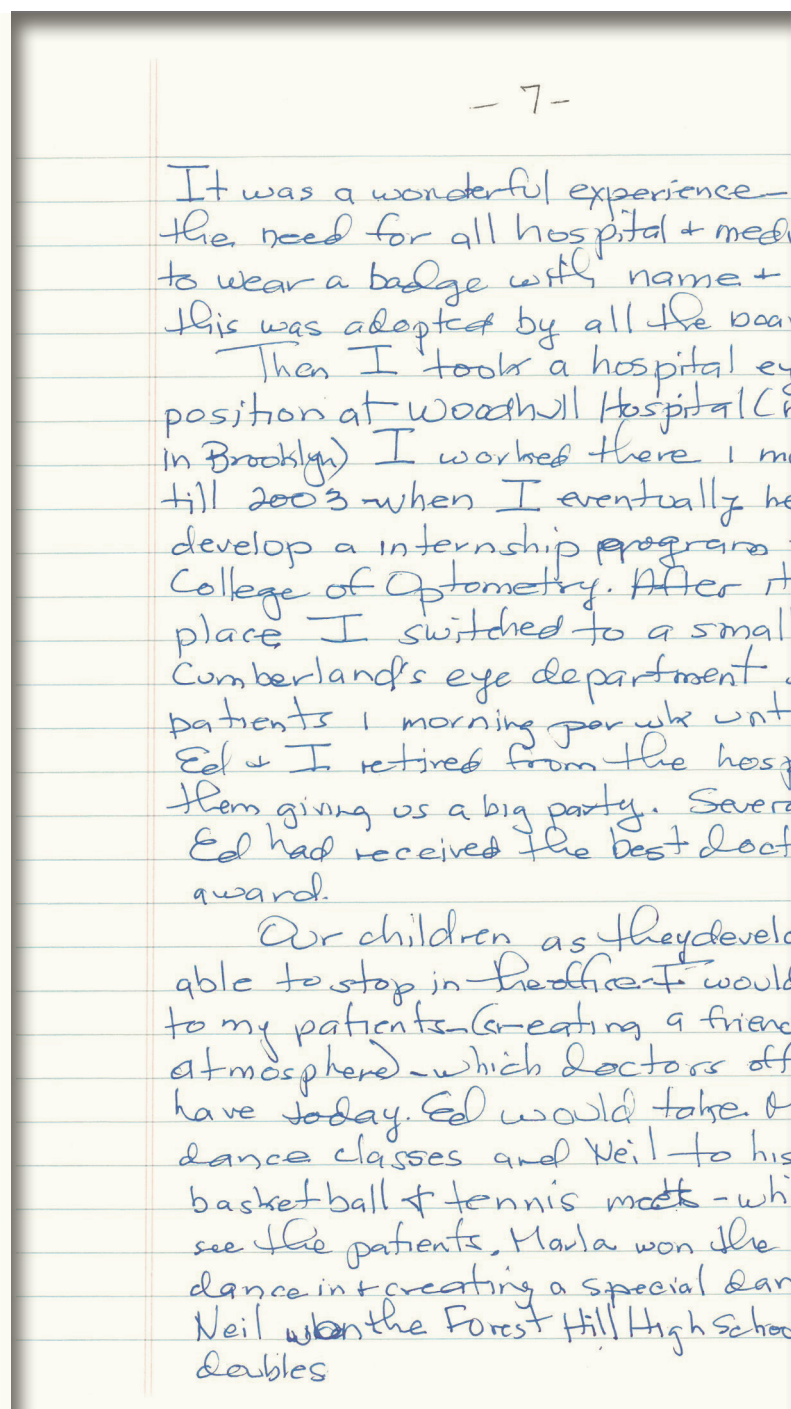 - 7 -
It was a wonderful experience-
the need for all hospital + med
to wear a badge with name +
this was adopted by all the
Then I took a hospital ey
position at Woodhull Hospital (
in Brooklyn) I worked there 1 m
till 2003 - when I eventually he
develop a internship program
College of Optometry. After it
place I switched to a small
Cumberland's eye department
patients 1 morning per wk unt
Ed + I retired from the hosp
them giving us a big party. Sever
Ed had received the best doct
award.
Our children as they develo
able to stop in the office - I would
to my patients - (creating a frien
atmosphere) - which doctors off
have today. Ed would take
dance classes and Neil to his
basketball + tennis meets - whi
see the patients. Marla won the
dance in + creating a special dan
Neil won the Forest Hill High Schoo
doubles